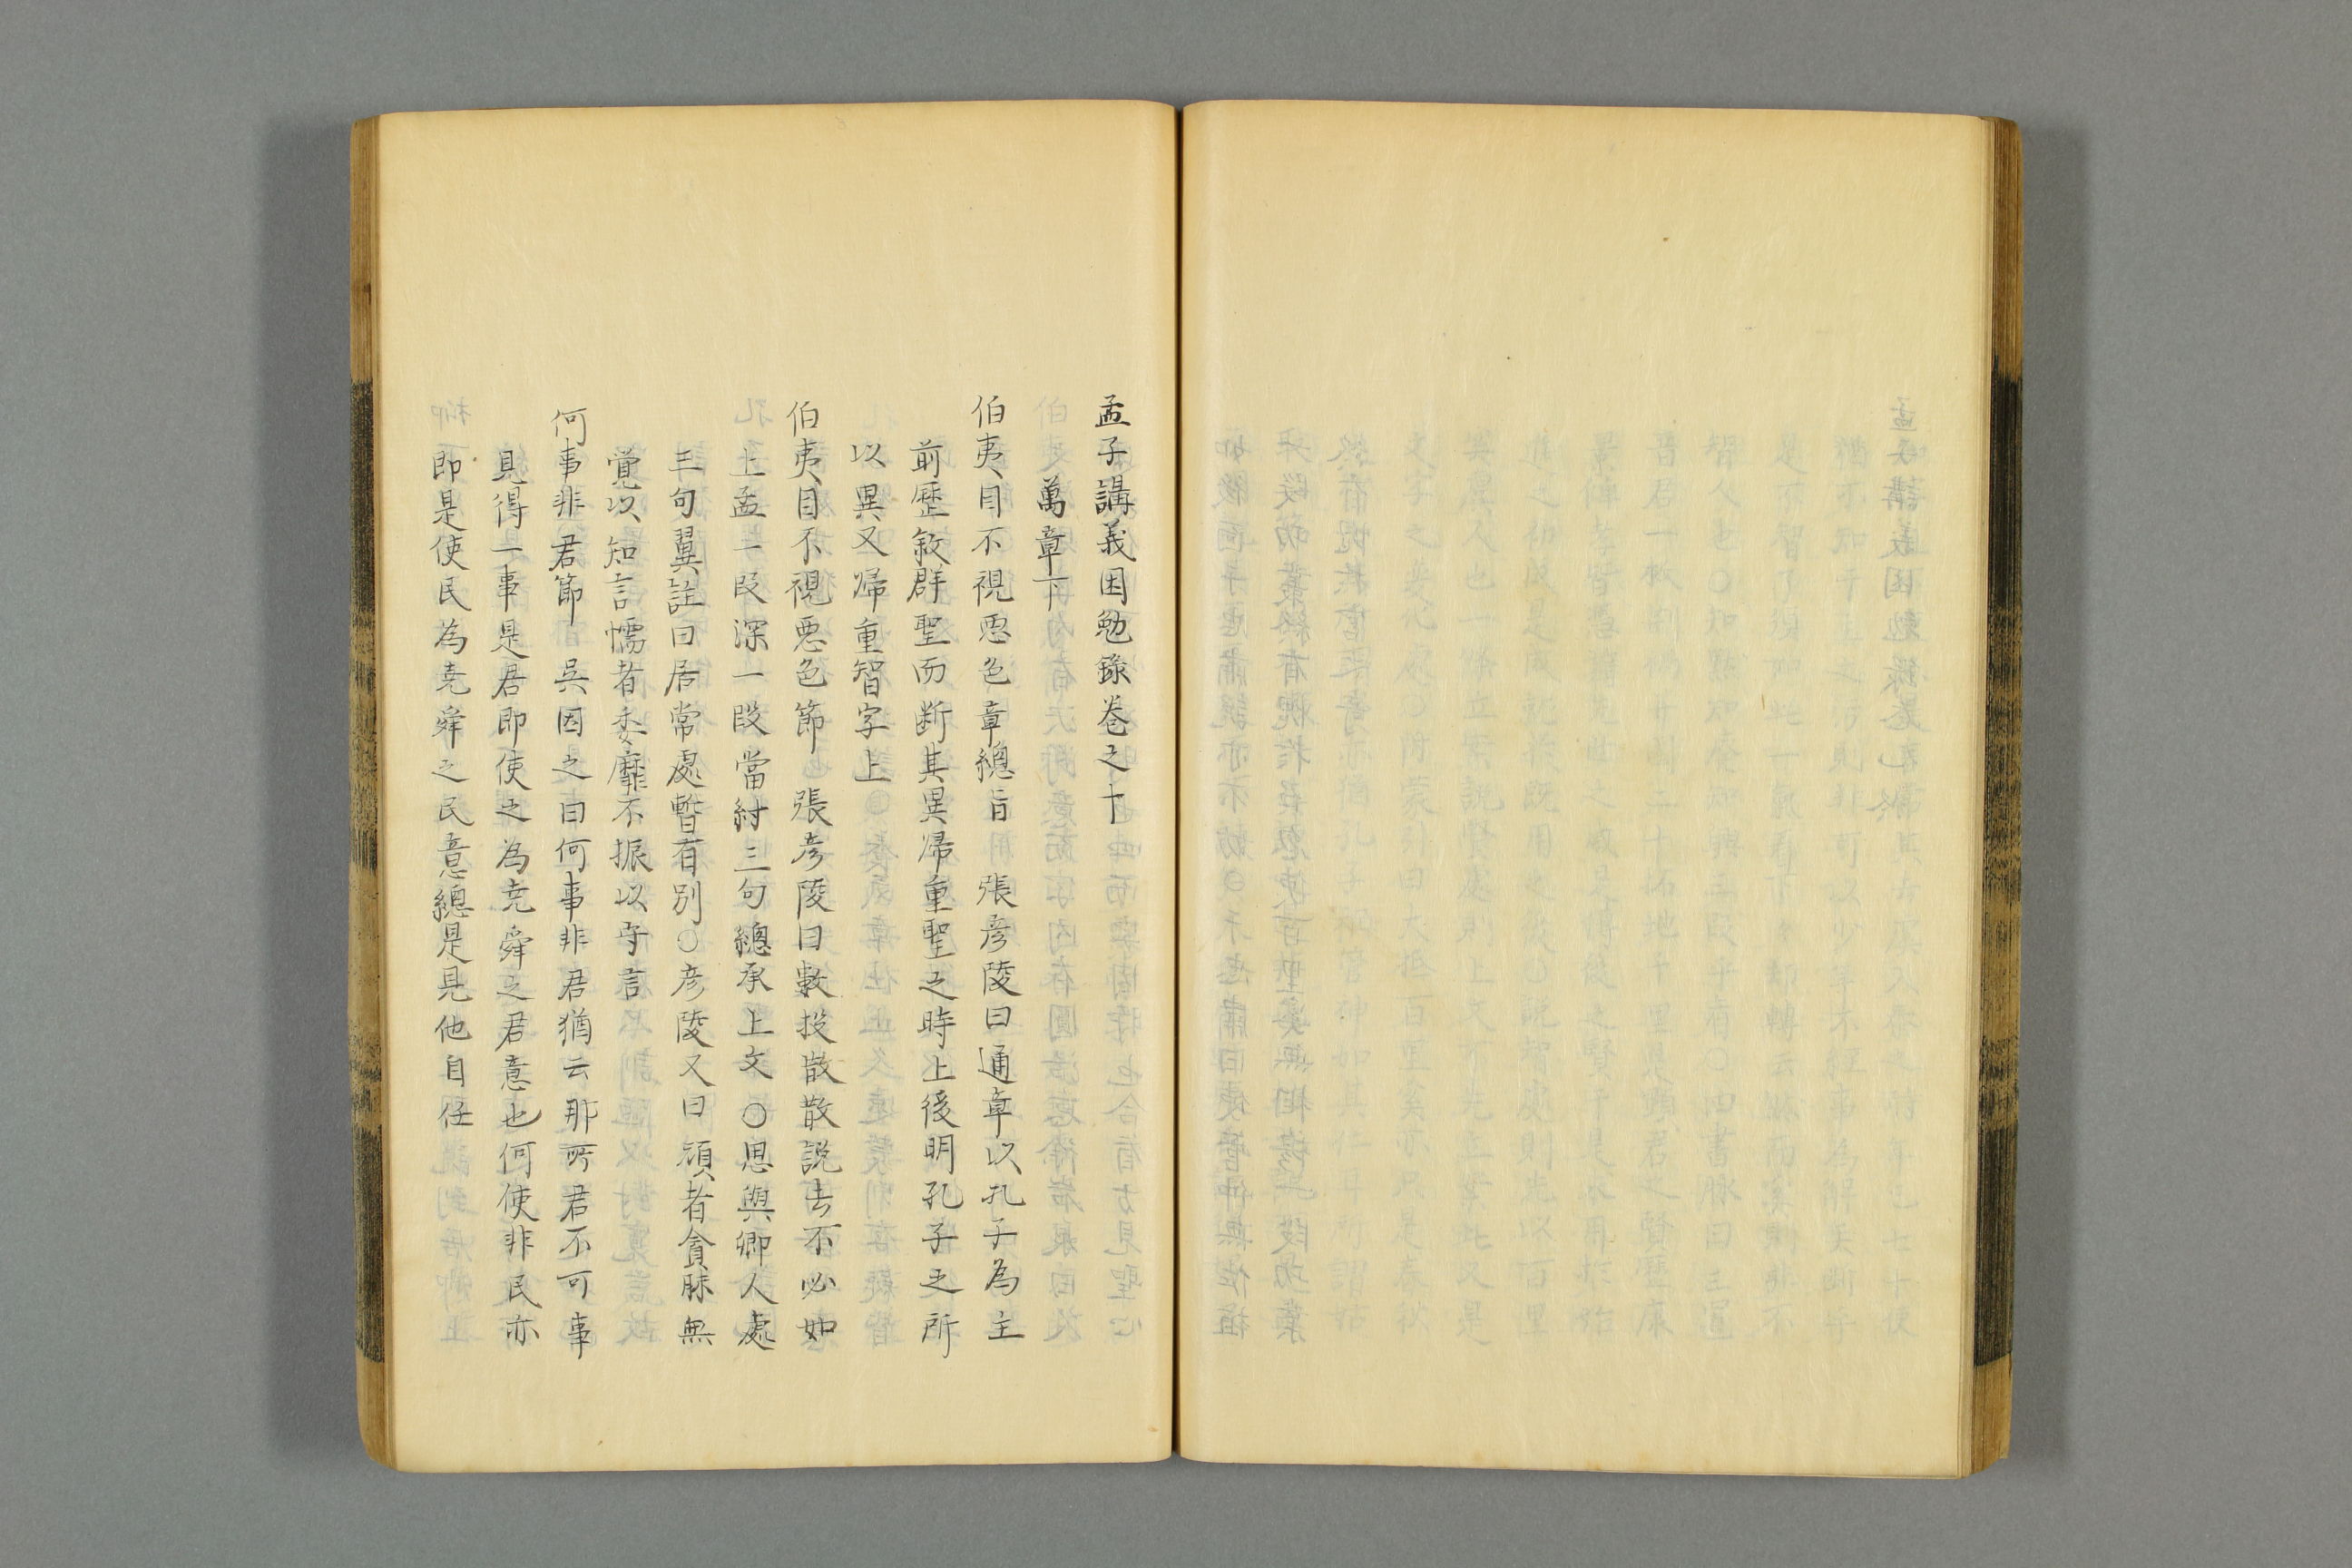 孟子講義困勉錄卷之十
萬章下
伯夷目不視惡色章總旨　張彥陵曰通章以孔子為主
前歷敘群聖而断其異歸重聖之時上後明孔子之所
以異又歸重智字上
伯夷目不視惡色節　張彥陵曰數段散散説去不必如
上孟一段深一段當紂三句總承上文○思與鄉人處
三句翼註曰居常處暫有別○彥陵又曰頑者貪昧無
覺以知言懦者委靡不振以守言
何事非君節　吳因之曰何事非君猶云那所君不可事
見得一事是君即使之為堯舜之君意也何使非民亦
即是使民為堯舜之民意總是見他自任